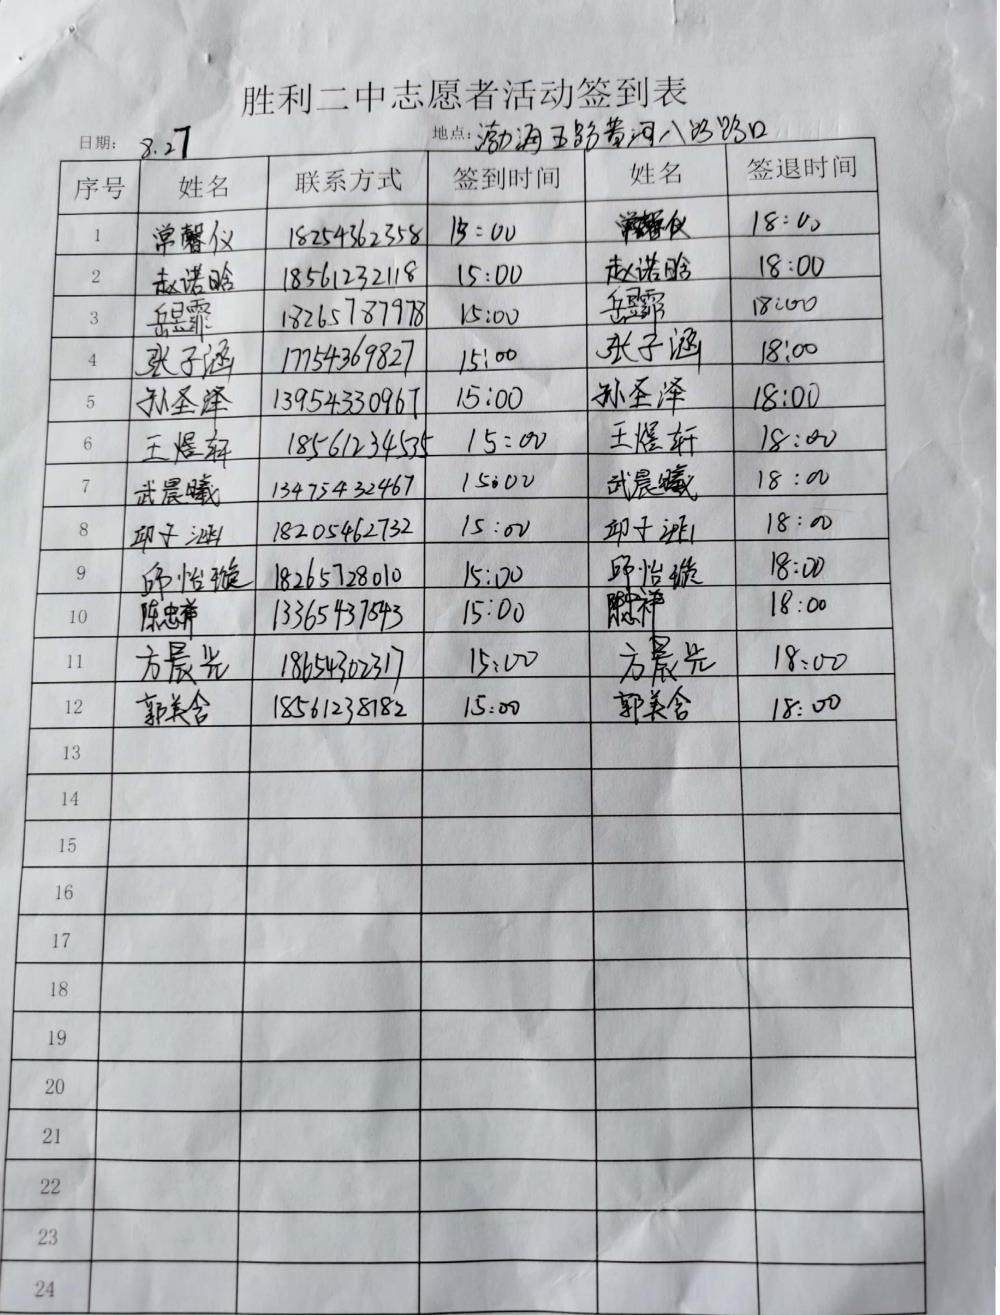 胜利二中志愿者活动签到表
日期: 8.27 地点: 渤海五路黄河八路路口
序号 姓名 联系方式 签到时间 姓名 签退时间
1 常馨仪 18254362358 15:00 常馨仪 18:00
2 赵诺晗 18561232118 15:00 赵诺晗 18:00
3 岳昱霏 18265787978 15:00 岳昱霏 18:00
4 张子涵 17754369827 15:00 张子涵 18:00
5 孙圣泽 13954330967 15:00 孙圣泽 18:00
6 王煜轩 18561234535 15:00 王煜轩 18:00
7 武晨曦 13475432467 15:00 武晨曦 18:00
8 邱子 18205462732 15:00 邱子 18:00
9 邱怡璇 18265728010 15:00 邱怡璇 18:00
10 陈忠祥 13365437543 15:00 陈忠祥 18:00
11 方晨光 18654302317 15:00 方晨光 18:00
12 郭美含 18561238182 15:00 郭美含 18:00
13
14
15
16
17
18
19
20
21
22
23
24